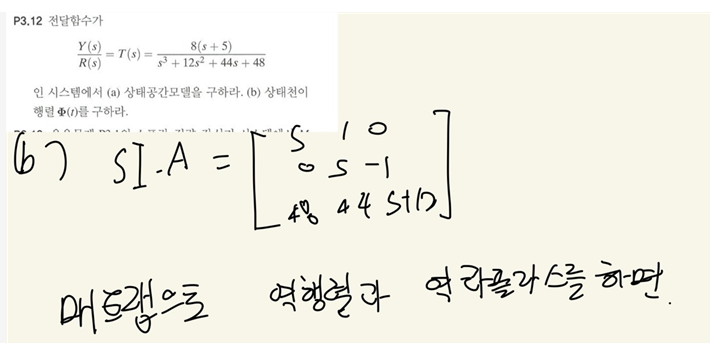 P3.12 전달함수가
Y(s)/R(s) = T(s) = 8(s + 5)/(s³ + 12s² + 44s + 48)
인 시스템에서 (a) 상태공간모델을 구하라. (b) 상태천이
행렬 Φ(t)를 구하라.
(b) SI-A = [
S 1 0
0 S -1
48 44 S+12
]
매트랩으로 역행렬과 역라플라스를 하면.